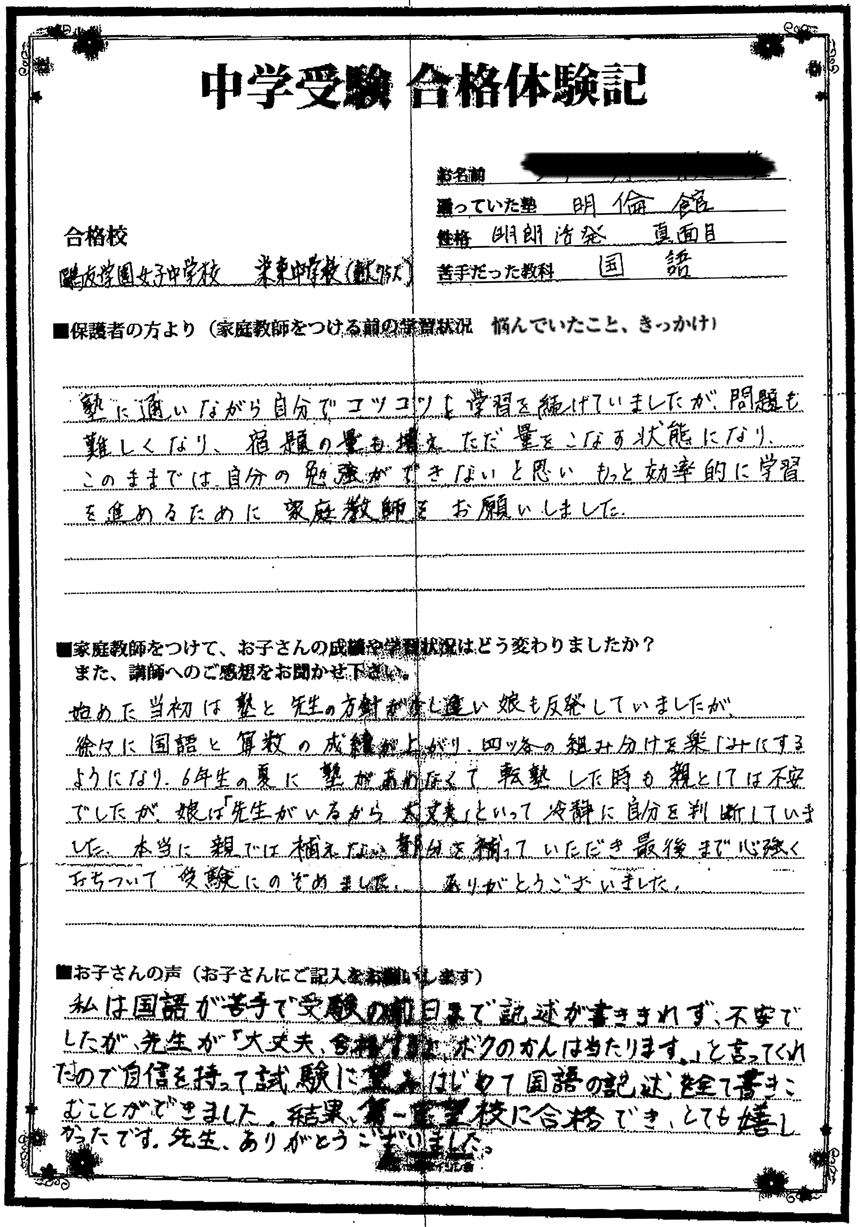 中学受験 合格体験記
お名前
通っていた塾 明倫館
性格 明朗活発 真面目
合格校
鷗友学園女子中学校 栄東中学校(東大クラス)
苦手だった教科 国語
■保護者の方より(家庭教師をつける前の学習状況 悩んでいたこと、きっかけ)
塾に通いながら自分でコツコツと学習を続けていましたが、問題も
難しくなり、宿題の量も増え ただ量をこなす状態になり、
このままでは自分の勉強ができないと思い もっと効率的に学習
を進めるために 家庭教師を お願いしました。
■家庭教師をつけて、お子さんの成績や学習状況はどう変わりましたか?
また、講師へのご感想をお聞かせ下さい。
始めた当初は塾と先生の方針が少し違い娘も反発していましたが、
徐々に国語と算数の成績が上がり、四ツ谷の組み分けを楽しみにする
ようになり、6年生の夏に 塾があわなくて 転塾した時も親としては不安
でしたが、娘は「先生がいるから 大丈夫」といって冷静に自分を判断していま
した。本当に親では補えない部分を補っていただき最後まで心強く
おちついて 受験にのぞめました。 ありがとうございました。
■お子さんの声(お子さんにご記入をお願いします)
私は国語が苦手で受験の前日まで記述が書ききれず、不安で
したが、先生が「大丈夫、合格するよ、ボクのかんは当たります。」と言ってくれ
たので自信を持って試験に望みはじめて国語の記述を全て書きこ
むことができました。結果、第一志望校に合格でき、とても嬉し
かったです。先生、ありがとうございました。